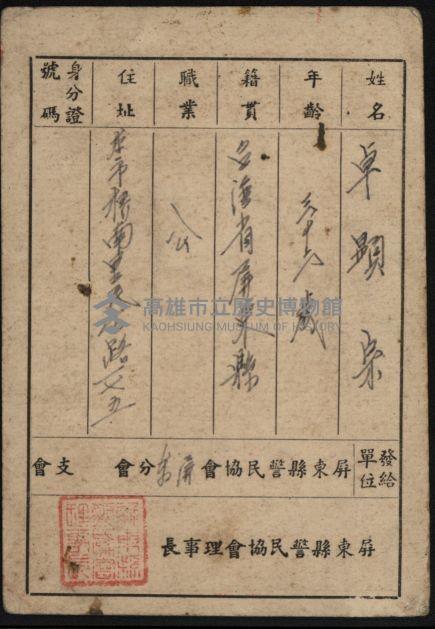 姓名 卓顯宗
年齡 三十六歲
籍貫 台灣省屏東縣
職業 公
住址 本市橋南里民族路
身分證號碼
發給單位 屏東縣警民協會屏東分會 支會
屏東縣警民協會理事長
高雄市立歷史博物館
KAOHSIUNG MUSEUM OF HISTORY